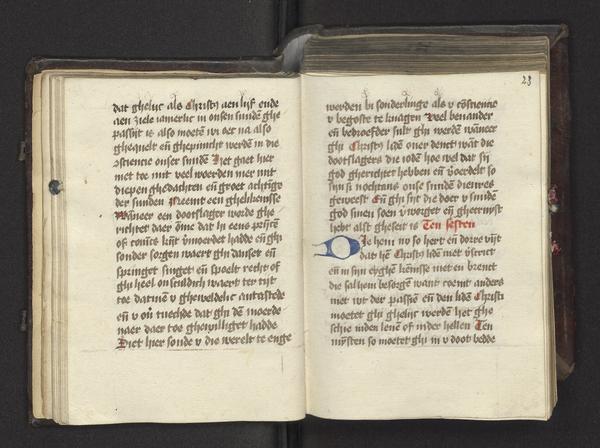 dat ghelijc als Christus aen lijf ende
aen ziele iamerlic in onsen sundē ghe
passijt is also moetē wi oec na also
ghequelt eñ ghepinicht werdē in die
ɔsciencie onser sundē Het gaet hier
niet toe mit veel woerden mer mit
diepen ghedachten eñ groet achtinge
der sunden Neemt een ghelikenisse
Wāneer een dootslager worde ghe
richtet daer ōme dat hi eens prijsē
of conīcs kijt v̄moerdet hadde eñ ghi
sonder sorgen waert ghi dansset eñ
springet singet eñ spoelt recht of
ghi heel onsculdich waert ter tijt
toe datmē v gheweldelic antastede
eñ v ou̇ tuechde dat ghi dē moerde
naer daer toe ghewilliget hadde
Siet hier soude v die werelt te enge
23
werden bi sonderlinge als v cōsciencie
v begoste te knagen Veel benander
eñ bedroefder sult ghi werdē wāneer
ghi Christus lidē ouer denct wāt die
dootslagers die iodē hoe wel dat sij
god gherichtet hebben eñ v̄oerdelt so
sijn si nochtans onse sundē dienres
geweest Eñ ghi sijt die doer v sunde
god sinen soen v worget eñ ghecruyst
hebt alst gheseit is Ten sesten
Die hem no so hert eñ dorre vijt
dat hē Christus lidē niet v̄scrict
eñ in sijn eyghē kēnisse niet en brenct
die sal hem besorgē want toemt anders
niet wt der passiē eñ den lidē Christi
moetet ghi ghelijc werdē het ghe
schie inden leuē of inder hellen Ten
mīsten so moetet ghi in v doot bedde